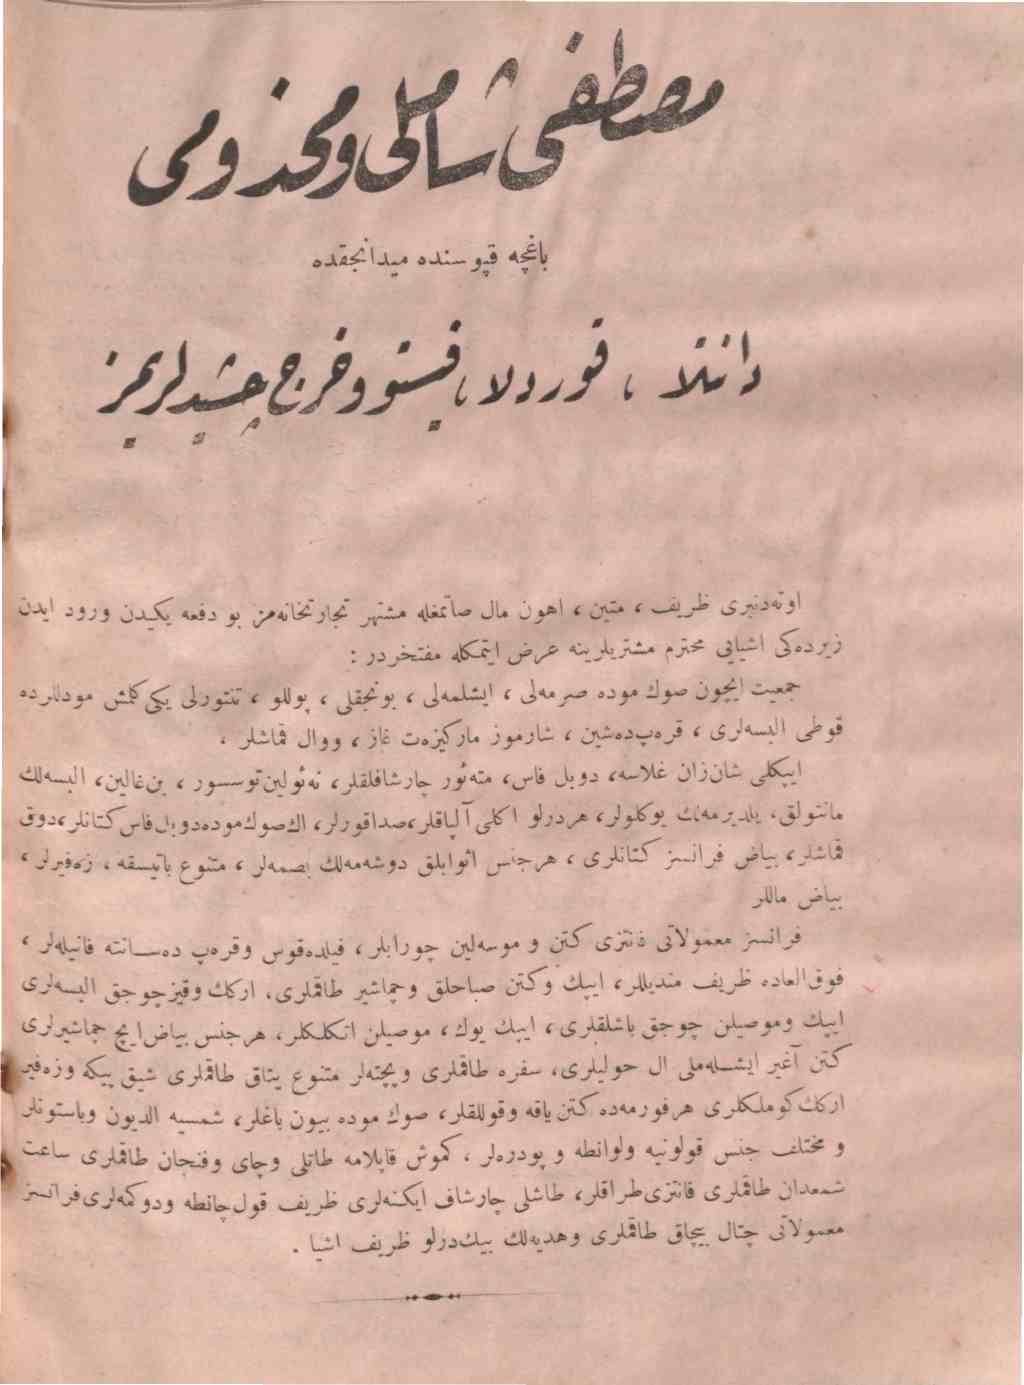 مصطفى شاملى ومخدومى
باغچه قپوسنده ميدانجقده
دانتلا ، قوردلا ، فيستو وخرج چشيدلريمز
اوته‌دنبرى ظريف ، متين ، اهون مال صاتمغله مشتهر تجارتخانه‌مز بو دفعه يكيدن ورود ايدن
زيرده‌كى اشيايى محترم مشتريلرينه عرض ايتمكله مفتخردر :
جمعيت ايچون صوك موده صرمه‌لى ، ايشلمه‌لى ، بونجقلى ، پوللو ، تنتورلى يكى كلمش مودللرده
قوطى البسه‌لرى ، قره‌پ‌ده‌شين ، شارموز ماركيزه‌ت غاز ، ووال قماشلر ،
ايپكلى شان‌ژان غلاسه، دوبل فاس، مته‌ئور چارشافلقلر، نه‌ئولين‌توسسور ، بن‌غالين، البسه‌لك
مانتولق، يلديرمه‌لك يوكلولر، هردرلو اكلى آلپاقلر، صداقورلر، اك صوك موده‌دوبل فاس كتانلر، دوق
قماشلر، بياض فرانسز كتانلرى ، هرجنس اثوابلق دوشه‌مه‌لك بصمه‌لر ، متنوع باتيسقه ، زه‌فيرلر ،
بياض ماللر
فرانسز معمولاتى فانتزى كتن و موسه‌لين چورابلر، فيلده‌قوس وقره‌پ ده‌ســانته فانيله‌لر ،
فوق العاده ظريف منديللر، ايپك وكتن صباحلق وچماشير طاقملرى، اركك وقيزچوجق البسه‌لرى
ايپك وموصيلن چوجق باشلقلرى، ايپك يوك، موصيلن اتكلكلر، هرجنس بياض‌ايچ چماشيرلرى
كتن آغير ايشــله‌ملى ال حوليلرى، سفره طاقملرى وپچته‌لر متنوع يتاق طاقملرى شيق پيكه وزه‌فير
اركك كوملكلرى هرفورمه‌ده كتن ياقه وقوللقلر، صوك موده بيون باغلر، شمسيه الديون وباستونلر
و مختلف جنس قولونيه ولوانطه و پودره‌لر ، كموش قاپلامه طاتلى وچاى وفنجان طاقملرى ساعت
شمعدان طاقملرى فانتزى‌طراقلر، طاشلى چارشاف ايكنه‌لرى ظريف قول‌چانطه ودوكمه‌لرى‌فرانسز
معمولاتى چتال بيچاق طاقملرى وهديه‌لك بيك‌درلو ظريف اشيا .